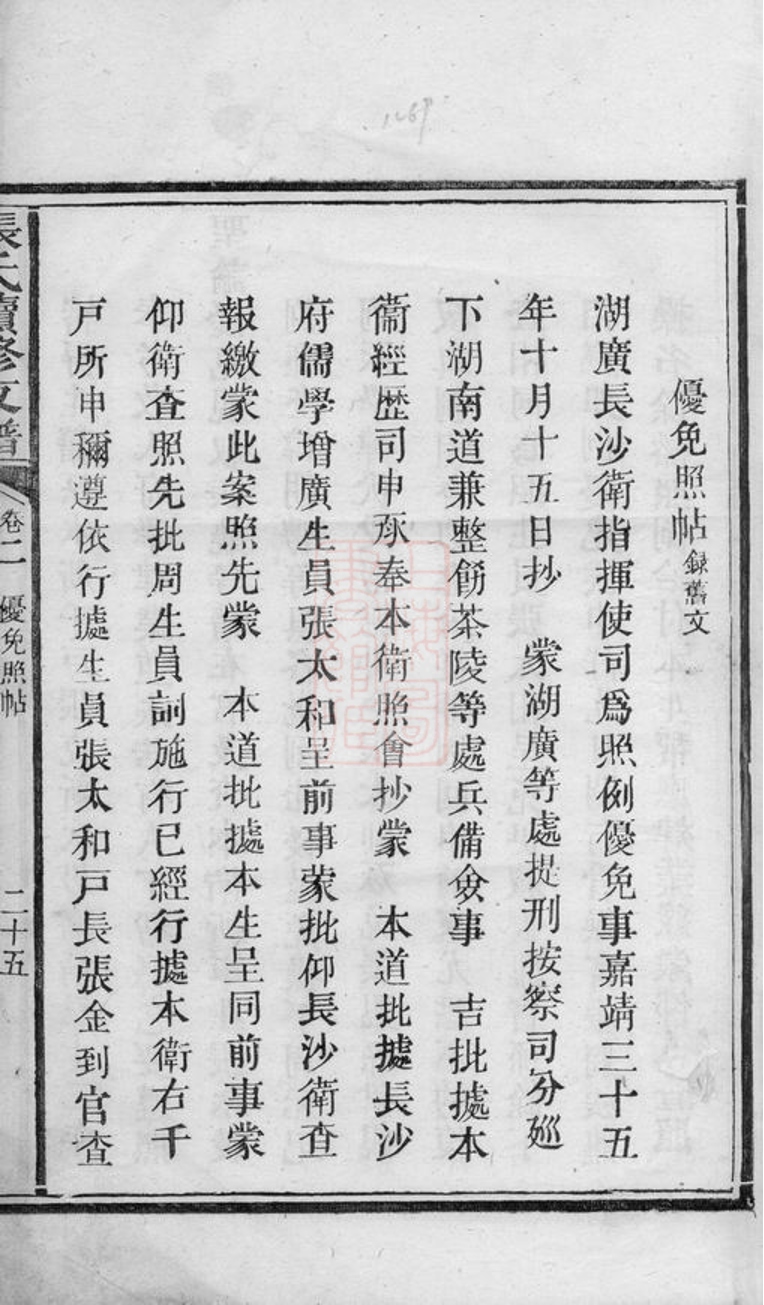 優免照帖錄舊文
湖廣長沙衛指揮使司爲照例優免事嘉靖三十五
年十月十五日抄 蒙湖廣等處提刑按察司分廵
下湖南道兼整飭茶陵等處兵備僉事 吉批據本
衞經歷司申承奉本衛照會抄蒙 本道批據長沙
府儒學增廣生員張太和呈前事蒙批仰長沙衛查
報繳蒙此案照先蒙 本道批據本生呈同前事蒙
仰衛查照先批周生員訓施行已經行據本衛右千
戸所申稱遵依行據生員張太和戸長張金到官查
張氏續修支譜
卷二 優免照帖
二十五